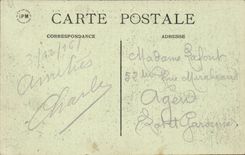 CARTE POSTALE
CORRESPONDANCE
ADRESSE
Amitiés
Charles
Madame Lafont
52 Rue Mirabeau
Agen
Lot et Garonne